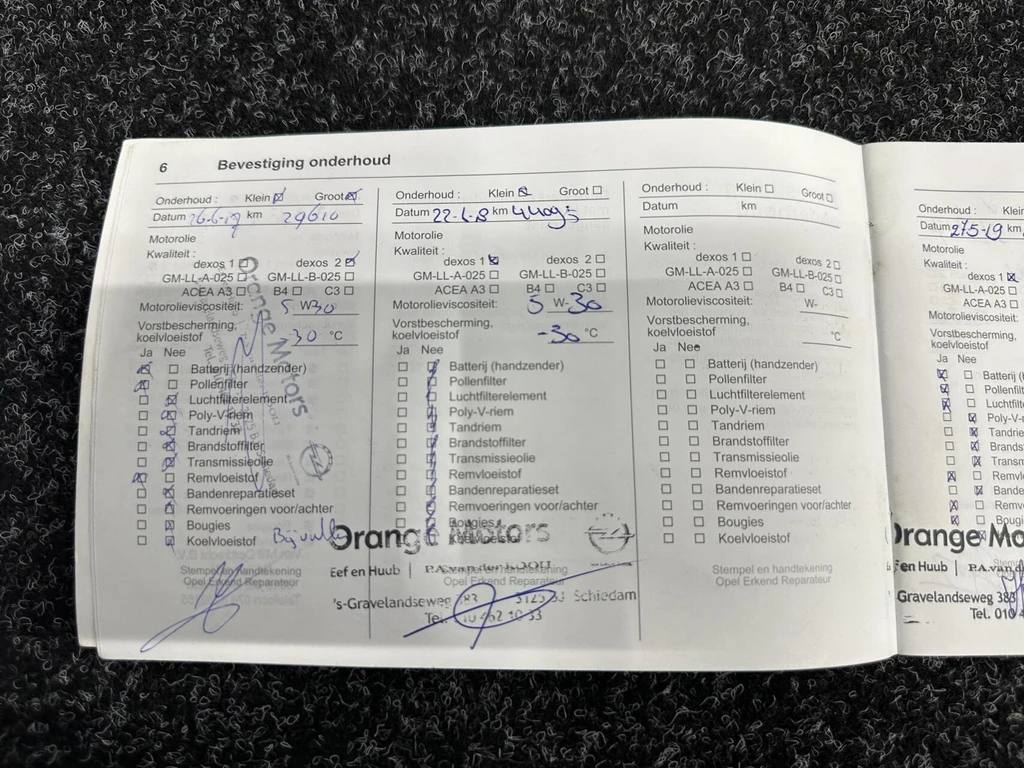 6 Bevestiging onderhoud
Onderhoud : Klein Groot
Datum 26-6-17 km 29610
Motorolie
Kwaliteit :
dexos 1 dexos 2
GM-LL-A-025 GM-LL-B-025
ACEA A3 B4 C3
Motorolieviscositeit: 5 W-30
Vorstbescherming,
koelvloeistof -30 °C
Ja Nee
Batterij (handzender)
Pollenfilter
Luchtfilterelement
Poly-V-riem
Tandriem
Brandstoffilter
Transmissieolie
Remvloeistof
Bandenreparatieset
Remvoeringen voor/achter
Bougies
Koelvloeistof
Stempel en handtekening
Opel Erkend Reparateur
Orange Motors
Onderhoud : Klein Groot
Datum km 44095
Motorolie
Kwaliteit :
dexos 1 dexos 2
GM-LL-A-025 GM-LL-B-025
ACEA A3 B4 C3
Motorolieviscositeit: 5 W-30
Vorstbescherming,
koelvloeistof -30 °C
Ja Nee
Batterij (handzender)
Pollenfilter
Luchtfilterelement
Poly-V-riem
Tandriem
Brandstoffilter
Transmissieolie
Remvloeistof
Bandenreparatieset
Remvoeringen voor/achter
Bougies
Koelvloeistof
Orange Motors
Eef en Huub | P.A. van der KOOIJ
Stempel en handtekening
Opel Erkend Reparateur
's-Gravelandseweg 383 3125 BJ Schiedam
Tel. 010 462 10 33
Onderhoud : Klein Groot
Datum km
Motorolie
Kwaliteit :
dexos 1 dexos 2
GM-LL-A-025 GM-LL-B-025
ACEA A3 B4 C3
Motorolieviscositeit: W-
Vorstbescherming,
koelvloeistof °C
Ja Nee
Batterij (handzender)
Pollenfilter
Luchtfilterelement
Poly-V-riem
Tandriem
Brandstoffilter
Transmissieolie
Remvloeistof
Bandenreparatieset
Remvoeringen voor/achter
Bougies
Koelvloeistof
Stempel en handtekening
Opel Erkend Reparateur
Onderhoud : Klein
Datum 27-5-19 km
Motorolie
Kwaliteit :
dexos 1
GM-LL-A-025
ACEA A3
Motorolieviscositeit:
Vorstbescherming,
koelvloeistof
Ja Nee
Batterij (
Pollenfilt
Luchtfilte
Poly-V-
Tandrie
Brands
Transm
Remvl
Banden
Remvo
Bougi
Orange Mo
Eef en Huub | P.A. van d
Gravelandseweg 383
Tel. 010 4